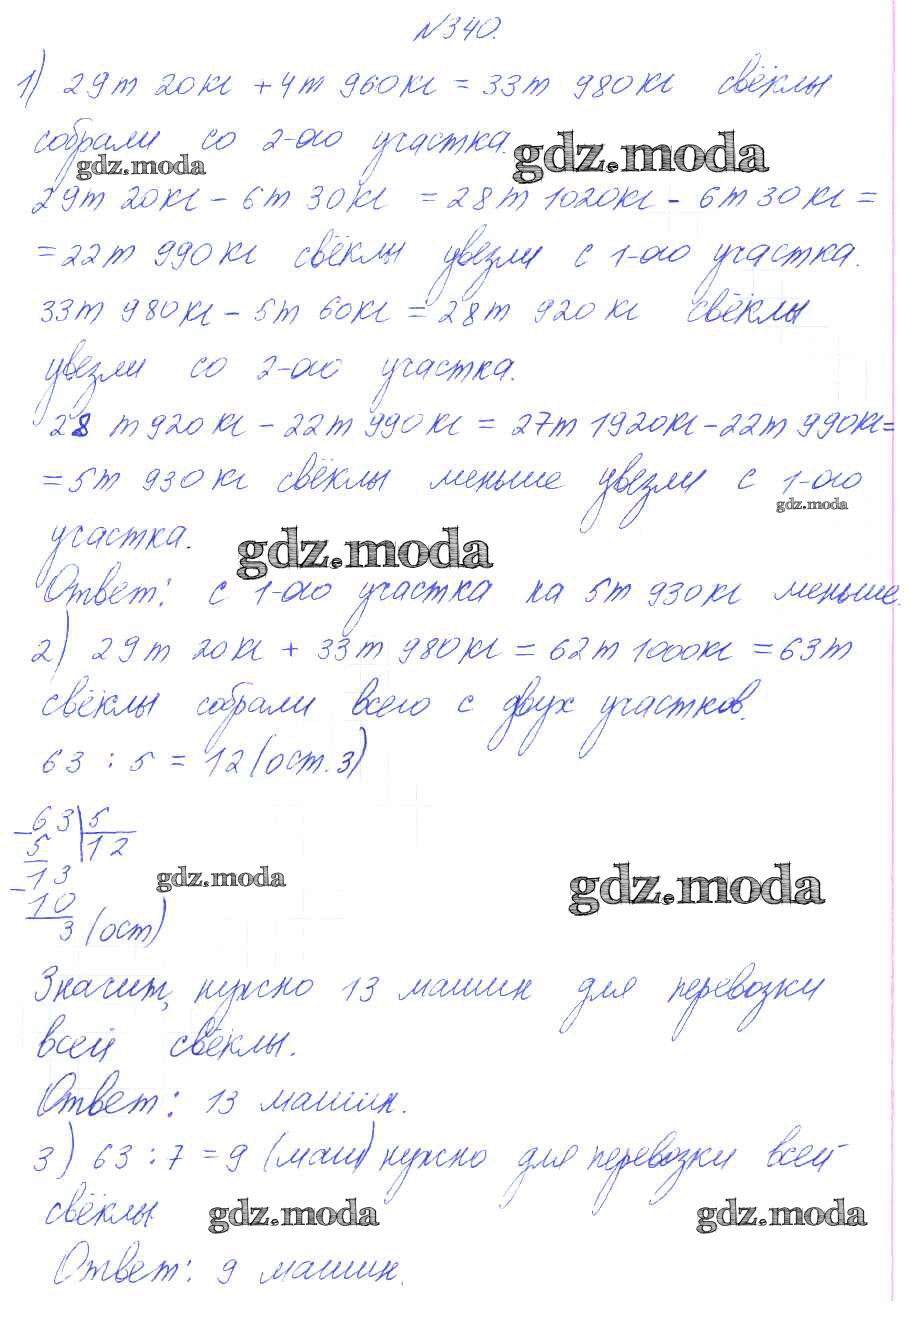 №340.
1) 29т 20кг + 4т 960кг = 33т 980кг свёклы
собрали со 2-ого участка.
gdz.moda gdz.moda
29т 20кг - 6т 30кг = 28т 1020кг - 6т 30кг =
= 22т 990кг свёклы увезли с 1-ого участка.
33т 980кг - 5т 60кг = 28т 920кг свёклы
увезли со 2-ого участка.
28 т 920кг - 22т 990кг = 27т 1920кг - 22т 990кг =
= 5т 930кг свёклы меньше увезли с 1-ого
gdz.moda
участка.
gdz.moda
Ответ: с 1-ого участка на 5т 930кг меньше.
2) 29т 20кг + 33т 980кг = 62т 1000кг = 63т
свёклы собрали всего с двух участков.
63 : 5 = 12 (ост. 3)
- 63 | 5
5 | 12
- 13
gdz.moda gdz.moda
10
3 (ост)
Значит, нужно 13 машин для перевозки
всей свёклы.
Ответ: 13 машин.
3) 63 : 7 = 9 (маш) нужно для перевозки всей
свёклы.
gdz.moda gdz.moda
Ответ: 9 машин.